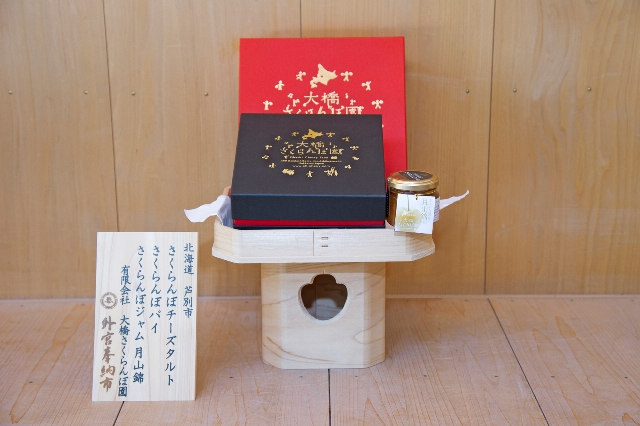 大橋
さくらんぼ園
大橋
さくらんぼ園
北海道 芦別市
さくらんぼチーズタルト
さくらんぼパイ
さくらんぼジャム 月山錦
有限会社 大橋さくらんぼ園
外宮奉納市